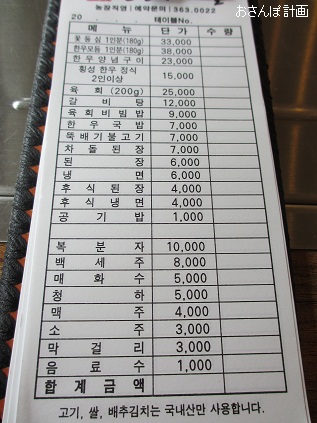 おさんぽ計画
농장직영 | 예약문의 | 363.0022
20 . . . 테이블No.
메 뉴 단 가 수 량
꽃 등 심 1인분(180g) 33,000
한우모듬 1인분(180g) 38,000
한 우 양 념 구 이 23,000
횡성 한우 정식
2인이상 15,000
육 회 (200g) 25,000
갈 비 탕 12,000
육 회 비 빔 밥 9,000
한 우 국 밥 7,000
뚝 배 기 불 고 기 7,000
차 돌 된 장 7,000
된 장 6,000
냉 면 6,000
후 식 된 장 4,000
후 식 냉 면 4,000
공 기 밥 1,000
복 분 자 10,000
백 세 주 8,000
매 화 수 5,000
청 하 5,000
맥 주 4,000
소 주 3,000
막 걸 리 3,000
음 료 수 1,000
합 계 금 액
고기, 쌀, 배추김치는 국내산만 사용합니다.